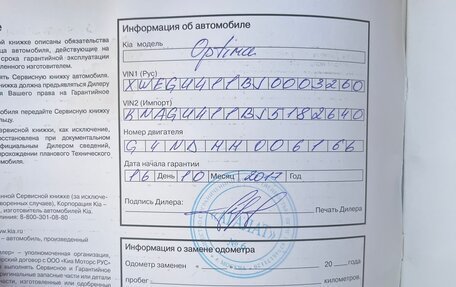 е
й книжке описаны обязательства
ца автомобиля, действующие на
срока гарантийной эксплуатации
ленного изготовителем.
ять Сервисную книжку автомобиля.
нижка должна предъявляться Дилеру
я Вашего права на Гарантийное
е.
автомобиля передайте Сервисную книжку
льцу.
ервисной книжки, как исключение,
восстановлена при документальном
фициальным Дилером сведений,
прохождении планового Технического
автомобиля.
нной Сервисной книжки (за исключе-
творенных случаев), Корпорация Kia –
, изготовитель автомобилей Kia.
линия: 8-800-301-08-80
w.kia.ru
– автомобиль, произведенный
лер» – уполномоченная организация,
рский договор с ООО «Киа Моторс РУС»
Информация об автомобиле
Kia модель Optima
VIN1 (Рус)
XWEGU411BJ0003260
VIN2 (Импорт)
KNAGU411BJ5182640
Номер двигателя
G4NDHH006166
Дата начала гарантии
16 День 10 Месяц 2017 Год
Подпись Дилера: Печать Дилера
Информация о замене одометра
Одометр заменен 20 года
пробег километров.